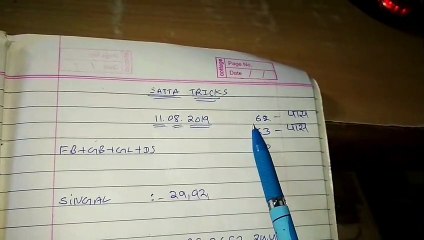 Page No.
Date
SATTA TRICKS
11.08.2019 62 - पास
53 - पास
FB+GB+GL+DS
SINGAL :- 29,92,